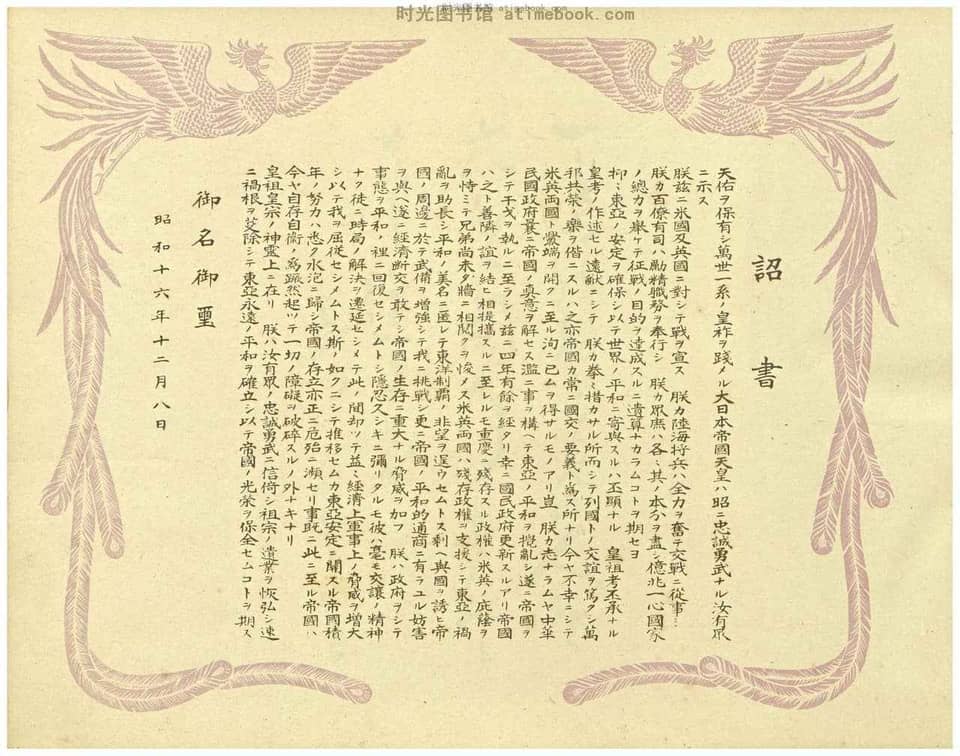 时光图书馆 atimebook.com
时光图书馆 atimebook.com
詔書
天佑ヲ保有シ萬世一系ノ皇祚ヲ踐メル大日本帝國天皇ハ昭ニ忠誠勇武ナル汝有眾
ニ示ス
朕玆ニ米國及英國ニ對シテ戰ヲ宣ス 朕カ陸海將兵ハ全力ヲ奮テ交戰ニ從事…
朕カ百僚有司ハ勵精職務ヲ奉行シ 朕カ眾庶ハ各〻其ノ本分ヲ盡シ億兆一心國家
ノ總力ヲ擧ケテ征戰ノ目的ヲ達成スルニ遺算ナカラムコトヲ期セヨ
抑〻東亞ノ安定ヲ確保シ以テ世界ノ平和ニ寄與スルハ丕顯ナル 皇祖考丕承ナル
皇考ノ作述セル遠猷ニシテ 朕カ拳〻措カサル所而シテ列國トノ交誼ヲ篤クシ萬
邦共榮ノ樂ヲ偕ニスルハ之亦帝國カ常ニ國交ノ要義ト爲ス所ナリ今ヤ不幸ニシテ
米英兩國ト釁端ヲ開クニ至ル洵ニ已ムヲ得サルモノアリ豈 朕カ志ナラムヤ中華
民國政府曩ニ帝國ノ眞意ヲ解セス濫ニ事ヲ構ヘテ東亞ノ平和ヲ攪亂シ遂ニ帝國ヲ
シテ干戈ヲ執ルニ至ラシメ玆ニ四年有餘ヲ經タリ幸ニ國民政府更新スルアリ帝國
ハ之ト善隣ノ誼ヲ結ヒ相提攜スルニ至レルモ重慶ニ殘存スル政權ハ米英ノ庇蔭ヲ
恃ミテ兄弟尚未タ牆ニ相鬩クヲ悛メス米英兩國ハ殘存政權ヲ支援シテ東亞ノ禍
亂ヲ助長シ平和ノ美名ニ匿レテ東洋制覇ノ非望ヲ逞ウセムトス剩ヘ與國ヲ誘ヒ帝
國ノ周邊ニ於テ武備ヲ增強シテ我ニ挑戰シ更ニ帝國ノ平和的通商ニ有ラユル妨害
ヲ與ヘ遂ニ經濟斷交ヲ敢テシ帝國ノ生存ニ重大ナル脅威ヲ加フ 朕ハ政府ヲシテ
事態ヲ平和ノ裡ニ回復セシメムトシ隱忍久シキニ彌リタルモ彼ハ毫モ交讓ノ精神
ナク徒ニ時局ノ解決ヲ遷延セシメテ此ノ間却ツテ益〻經濟上軍事上ノ脅威ヲ增大
シ以テ我ヲ屈從セシメムトス斯ノ如クニシテ推移セムカ東亞安定ニ關スル帝國積
年ノ努力ハ悉ク水泡ニ歸シ帝國ノ存立亦正ニ危殆ニ瀕セリ事旣ニ此ニ至ル帝國ハ
今ヤ自存自衞ノ爲蹶然起ツテ一切ノ障礙ヲ破碎スルノ外ナキナリ
皇祖皇宗ノ神靈上ニ在リ 朕ハ汝有眾ノ忠誠勇武ニ信倚シ祖宗ノ遺業ヲ恢弘シ速
ニ禍根ヲ芟除シテ東亞永遠ノ平和ヲ確立シ以テ帝國ノ光榮ヲ保全セムコトヲ期ス
御名御璽
昭和十六年十二月八日